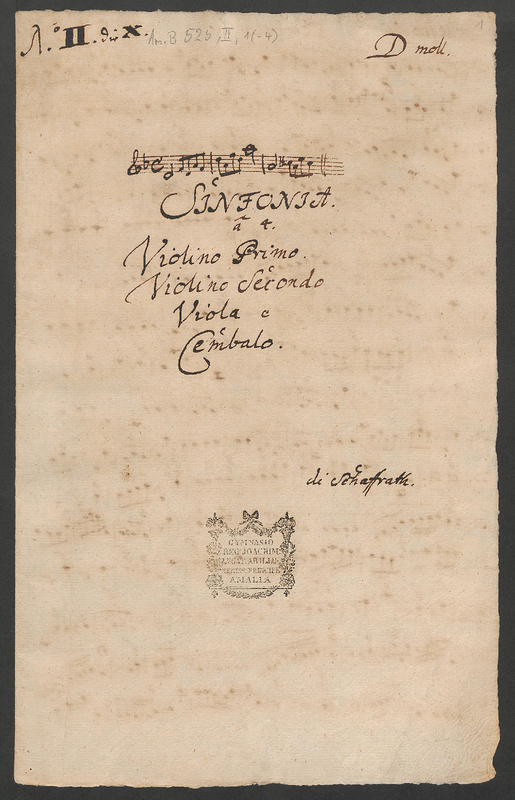 N.º II. die X. Am. B 525, II, 1(-4)
D moll.
1
SINFONIA.
à 4.
Violino Primo.
Violino Secondo
Viola e
Cembalo.
di Schaffrath.
GYMNASIO
REG. JOACHIM.
AMALIA